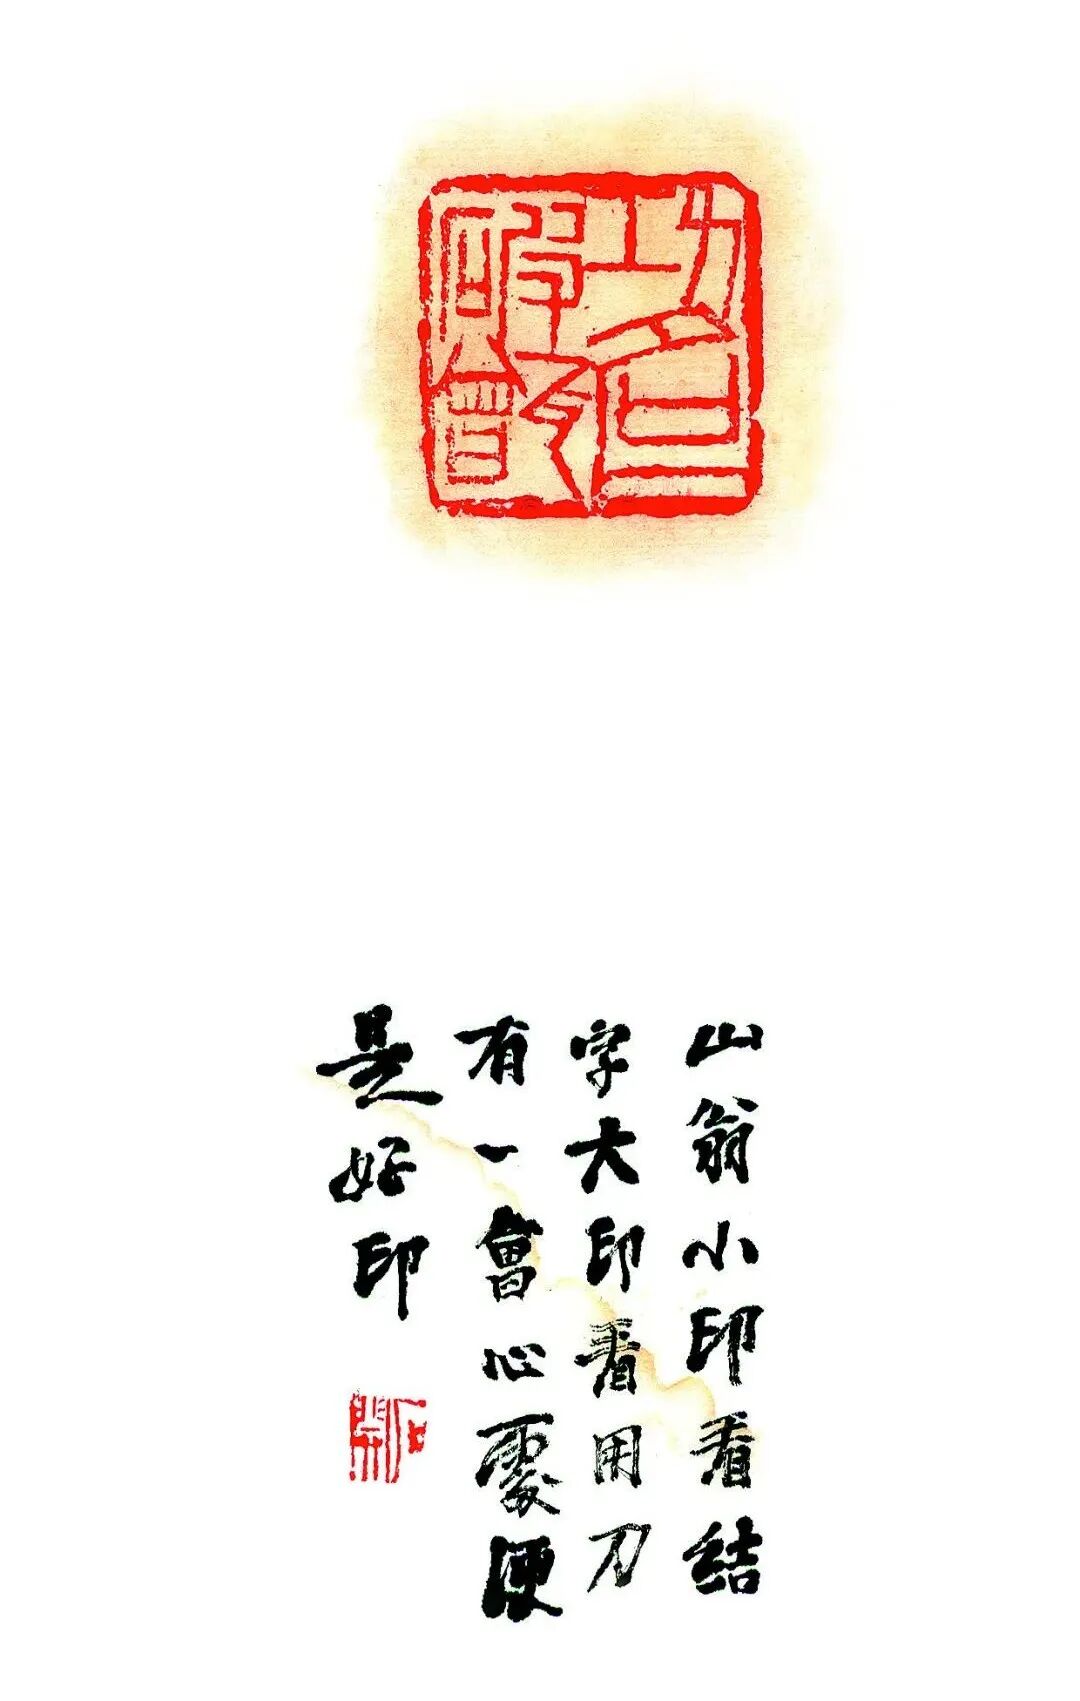 山翁小印看結
字大印看用刀
有一會心處便
是好印
石開